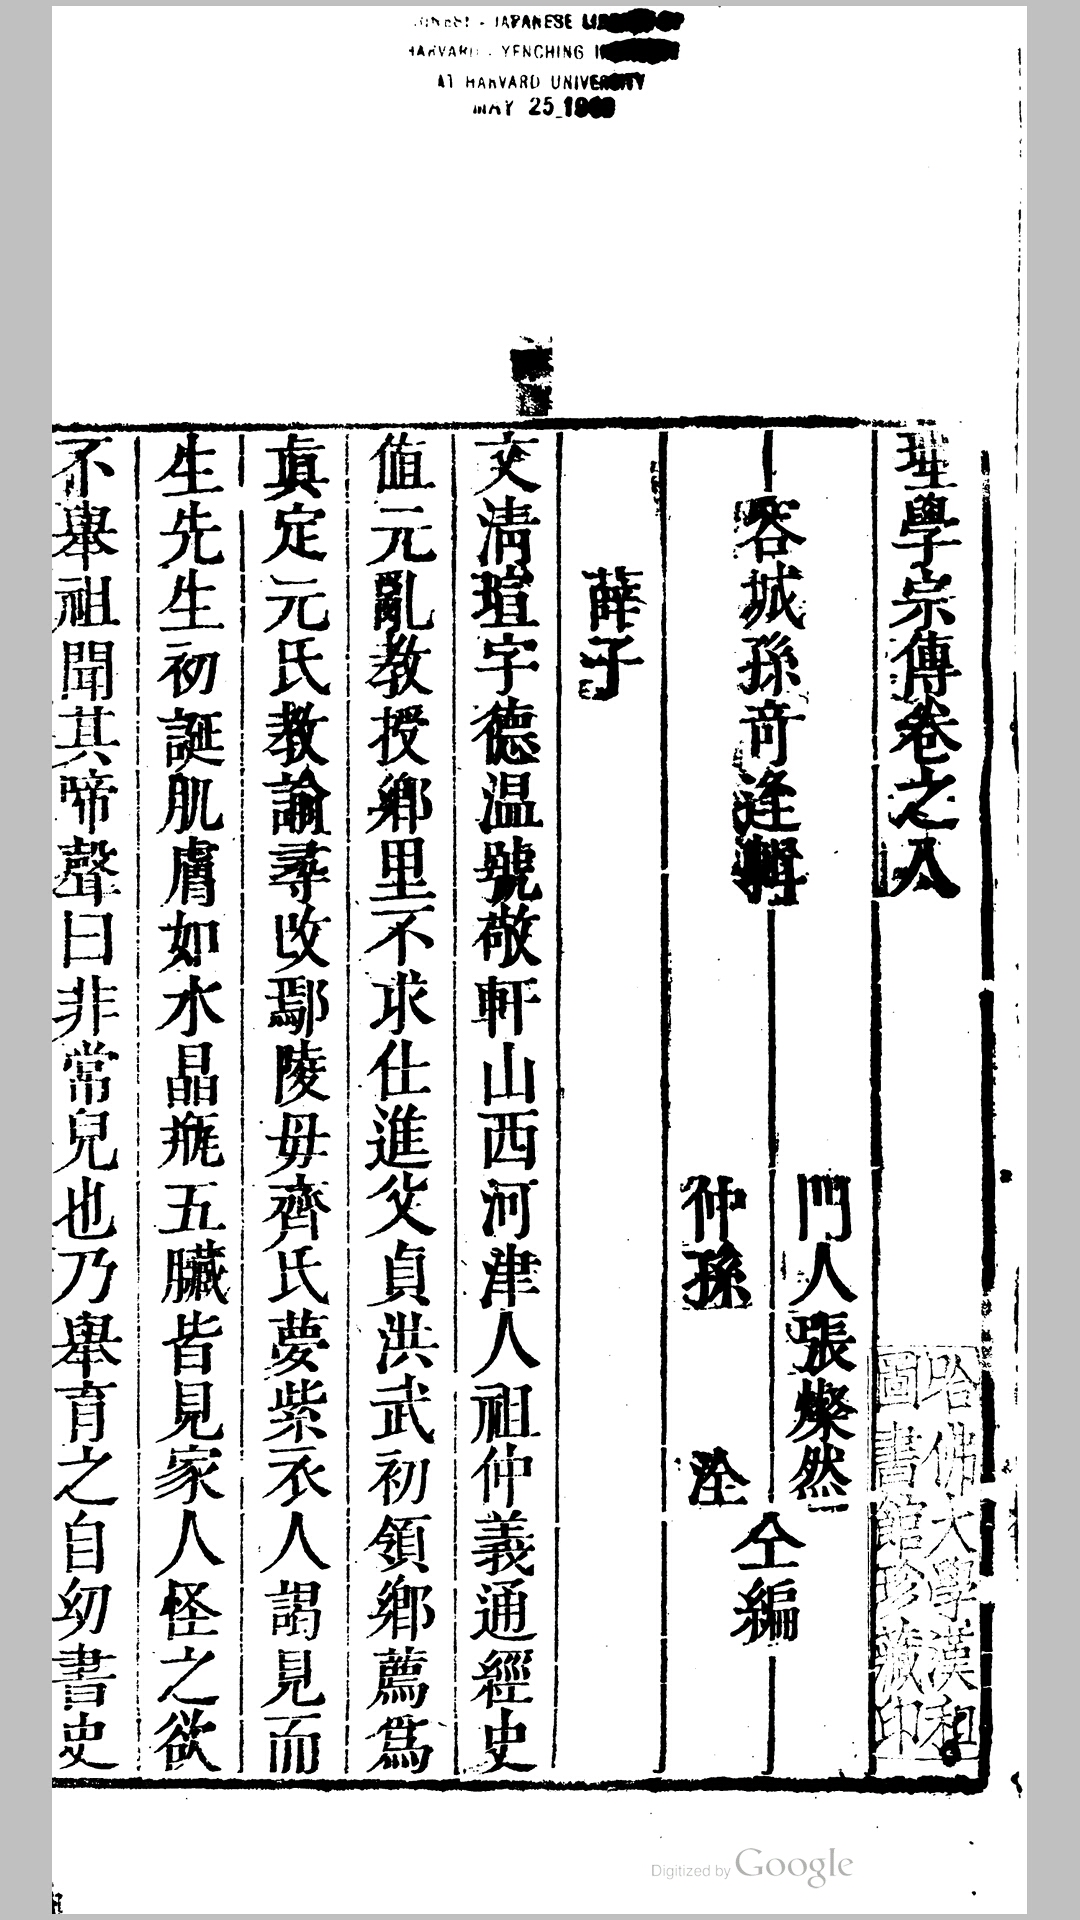 JAPANESE
HARVARD - YENCHING
AT HARVARD UNIVERSITY
MAY 25 1960
理學宗傳卷之八
容城孫奇逢輯
門人張燦然
仲孫 洤
仝編
薛子
文淸瑄字德温號敬軒山西河津人祖仲義通經史
値元亂教授鄉里不求仕進父貞洪武初領鄉薦爲
眞定元氏教諭尋改鄢陵毋齊氏夢紫衣人謁見而
生先生初誕肌膚如水晶瓶五臟皆見家人怪之欲
不舉祖聞其啼聲曰非常兒也乃舉育之自幼書史
哈佛大學漢和
圖書館珍藏印
Digitized by Google